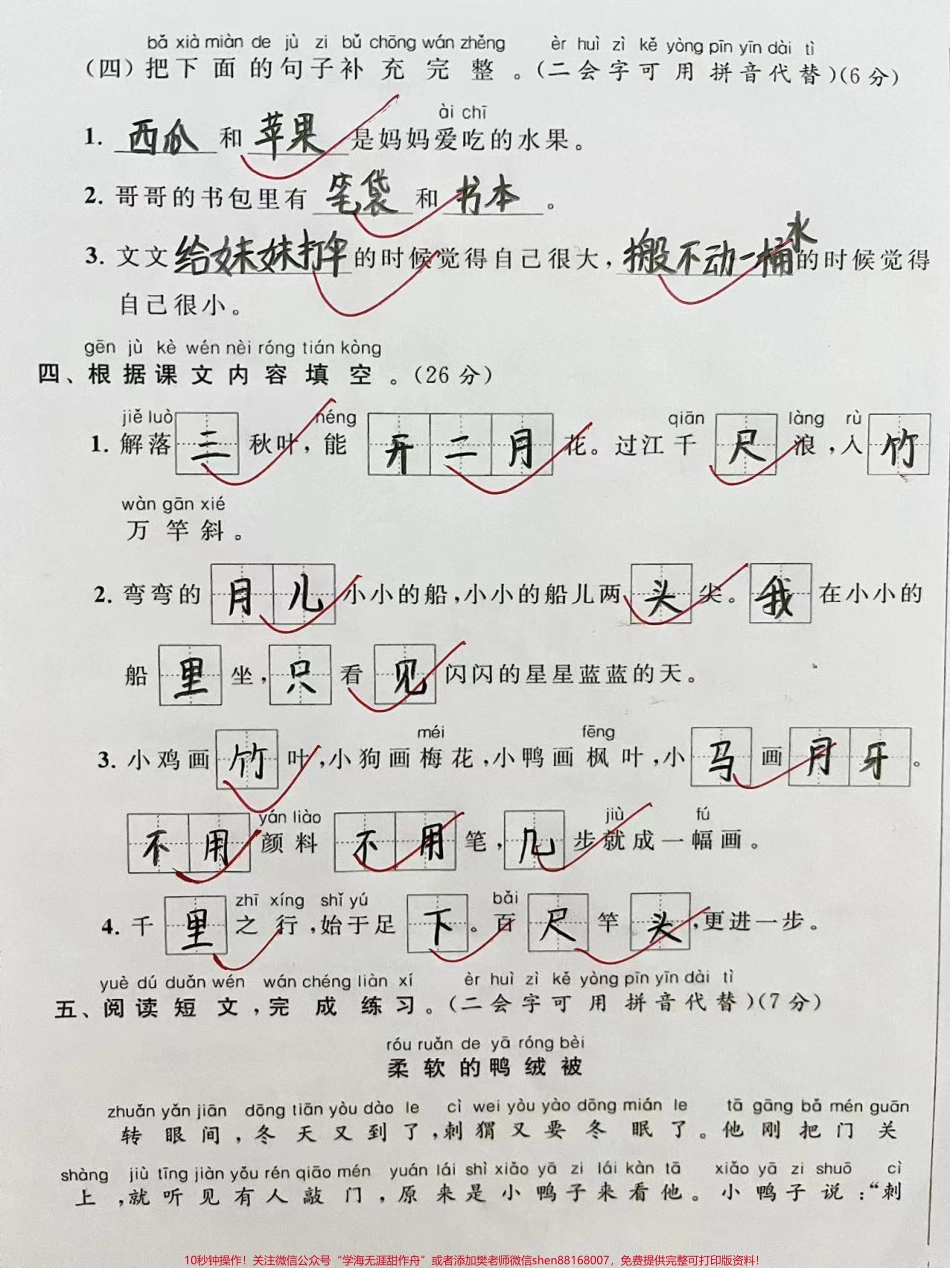 bǎ xià miàn de jù zi bǔ chōng wán zhěng èr huì zì kě yòng pīn yīn dài tì
(四)把下面的句子补充完整。(二会字可用拼音代替)(6分)
ài chī
1. 西瓜 和 苹果 是妈妈爱吃的水果。
2. 哥哥的书包里有 笔袋 和 书本 。
3. 文文 给妹妹打伞 的时候觉得自己很大, 搬不动一桶水 的时候觉得
自己很小。
gēn jù kè wén nèi róng tián kòng
四、根据课文内容填空。(26分)
jiě luò néng qiān làng rù
1. 解落 三 秋叶,能 开二月 花。过江千 尺 浪,入 竹
wàn gān xié
万竿斜。
2. 弯弯的 月儿 小小的船,小小的船儿两 头 尖。 我 在小小的
船 里 坐, 只 看 见 闪闪的星星蓝蓝的天。
méi fēng
3. 小鸡画 竹 叶,小狗画梅花,小鸭画枫叶,小 马 画 月牙 。
yán liào jiù fú
不用 颜料 不用 笔, 几 步就成一幅画。
zhī xíng shǐ yú bǎi
4. 千 里 之行,始于足 下 。百 尺 竿 头 ,更进一步。
yuè dú duǎn wén wán chéng liàn xí èr huì zì kě yòng pīn yīn dài tì
五、阅读短文,完成练习。(二会字可用拼音代替)(7分)
róu ruǎn de yā róng bèi
柔软的鸭绒被
zhuǎn yǎn jiān dōng tiān yòu dào le cì wei yòu yào dōng mián le tā gāng bǎ mén guān
转眼间,冬天又到了,刺猬又要冬眠了。他刚把门关
shàng jiù tīng jiàn yǒu rén qiāo mén yuán lái shì xiǎo yā zi lái kàn tā xiǎo yā zi shuō cì
上,就听见有人敲门,原来是小鸭子来看他。小鸭子说:“刺
10秒钟操作!关注微信公众号“学海无涯甜作舟”或者添加樊老师微信shen88168007,免费提供完整可打印版资料!